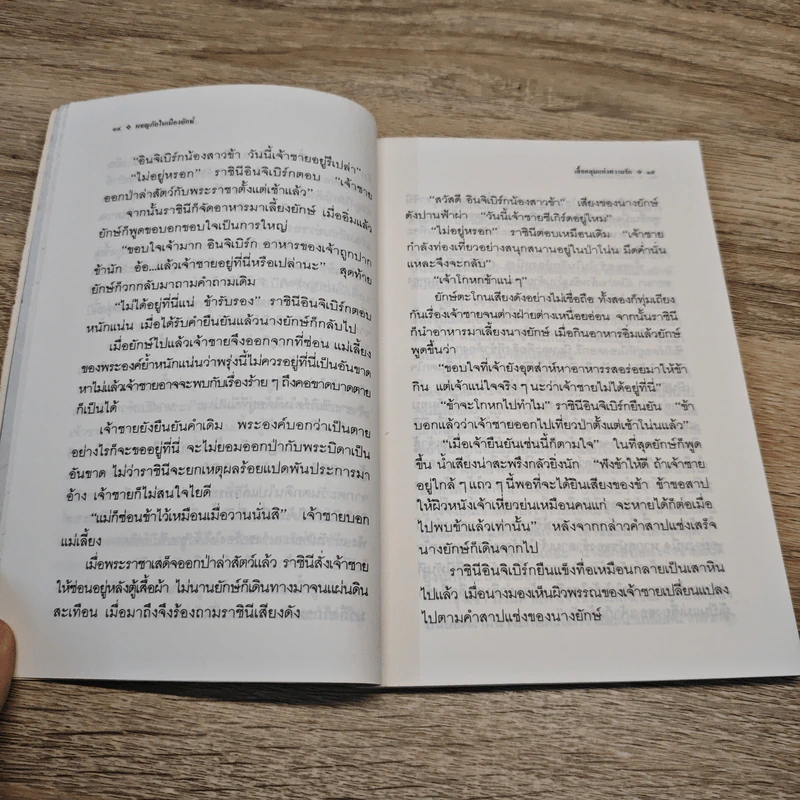 ๑๔ ❖ ผจญภัยในเมืองยักษ์
"อินจิเบิร์กน้องสาวข้า วันนี้เจ้าชายอยู่รึเปล่า"
"ไม่อยู่หรอก" ราชินีอินจิเบิร์กตอบ "เจ้าชาย
ออกป่าล่าสัตว์กับพระราชาตั้งแต่เช้าแล้ว"
จากนั้นราชินีก็จัดอาหารมาเลี้ยงยักษ์ เมื่ออิ่มแล้ว
ยักษ์ก็พูดขอบอกขอบใจเป็นการใหญ่
"ขอบใจเจ้ามาก อินจิเบิร์ก อาหารของเจ้าถูกปาก
ข้านัก อ้อ...แล้วเจ้าชายอยู่ที่นี่หรือเปล่านะ" สุดท้าย
ยักษ์ก็วกกลับมาถามคำถามเดิม
"ไม่ได้อยู่ที่นี่แน่ ข้ารับรอง" ราชินีอินจิเบิร์กตอบ
หนักแน่น เมื่อได้รับคำยืนยันแล้วนางยักษ์ก็กลับไป
เมื่อยักษ์ไปแล้วเจ้าชายจึงออกจากที่ซ่อน แม่เลี้ยง
ของพระองค์ย้ำหนักแน่นว่าพรุ่งนี้ไม่ควรอยู่ที่นี่เป็นอันขาด
หาไม่แล้วเจ้าชายอาจจะพบกับเรื่องร้าย ๆ ถึงคอขาดบาดตาย
ก็เป็นได้
เจ้าชายยังยืนยันคำเดิม พระองค์บอกว่าเป็นตาย
อย่างไรก็จะขออยู่ที่นี่ จะไม่ยอมออกป่ากับพระบิดาเป็น
อันขาด ไม่ว่าราชินีจะยกเหตุผลร้อยแปดพันประการมา
อ้าง เจ้าชายก็ไม่สนใจไยดี
"แม่ก็ซ่อนข้าไว้เหมือนเมื่อวานนั่นสิ" เจ้าชายบอก
แม่เลี้ยง
เมื่อพระราชาเสด็จออกป่าล่าสัตว์แล้ว ราชินีสั่งเจ้าชาย
ให้ซ่อนอยู่หลังตู้เสื้อผ้า ไม่นานยักษ์ก็เดินทางมาจนแผ่นดิน
สะเทือน เมื่อมาถึงจึงร้องถามราชินีเสียงดัง
เสื้อคลุมแห่งความรัก ❖ ๑๕
"สวัสดี อินจิเบิร์กน้องสาวข้า" เสียงของนางยักษ์
ดังปานฟ้าผ่า "วันนี้เจ้าชายซีเกิร์ดอยู่ไหม"
"ไม่อยู่หรอก" ราชินีตอบเหมือนเดิม "เจ้าชาย
กำลังท่องเที่ยวอย่างสนุกสนานอยู่ในป่าโน่น มืดค่ำนั่น
แหละจึงจะกลับ"
"เจ้าโกหกข้าแน่ ๆ"
ยักษ์ตะโกนเสียงดังอย่างไม่เชื่อถือ ทั้งสองก็ทุ่มเถียง
กันเรื่องเจ้าชายจนต่างฝ่ายต่างเหนื่อยอ่อน จากนั้นราชินี
ก็นำอาหารมาเลี้ยงนางยักษ์ เมื่อกินอาหารอิ่มแล้วยักษ์
พูดขึ้นว่า
"ขอบใจที่เจ้ายังอุตส่าห์หาอาหารรสอร่อยมาให้ข้า
กิน แต่เจ้าแน่ใจจริง ๆ นะว่าเจ้าชายไม่ได้อยู่ที่นี่"
"ข้าจะโกหกไปทำไม" ราชินีอินจิเบิร์กยืนยัน "ข้า
บอกแล้วว่าเจ้าชายออกไปเที่ยวป่าตั้งแต่เช้าโน่นแล้ว"
"เมื่อเจ้ายืนยันเช่นนี้ก็ตามใจ" ในที่สุดยักษ์ก็พูด
ขึ้น น้ำเสียงน่าสะพรึงกลัวยิ่งนัก "ฟังข้าให้ดี ถ้าเจ้าชาย
อยู่ใกล้ ๆ แถว ๆ นี้พอที่จะได้ยินเสียงของข้า ข้าขอสาป
ให้ผิวหนังเจ้าเหี่ยวย่นเหมือนคนแก่ จะหายได้ก็ต่อเมื่อ
ไปพบข้าแล้วเท่านั้น" หลังจากกล่าวคำสาปแช่งเสร็จ
นางยักษ์ก็เดินจากไป
ราชินีอินจิเบิร์กยืนแข็งทื่อเหมือนกลายเป็นเสาหิน
ไปแล้ว เมื่อนางมองเห็นผิวพรรณของเจ้าชายเปลี่ยนแปลง
ไปตามคำสาปแช่งของนางยักษ์